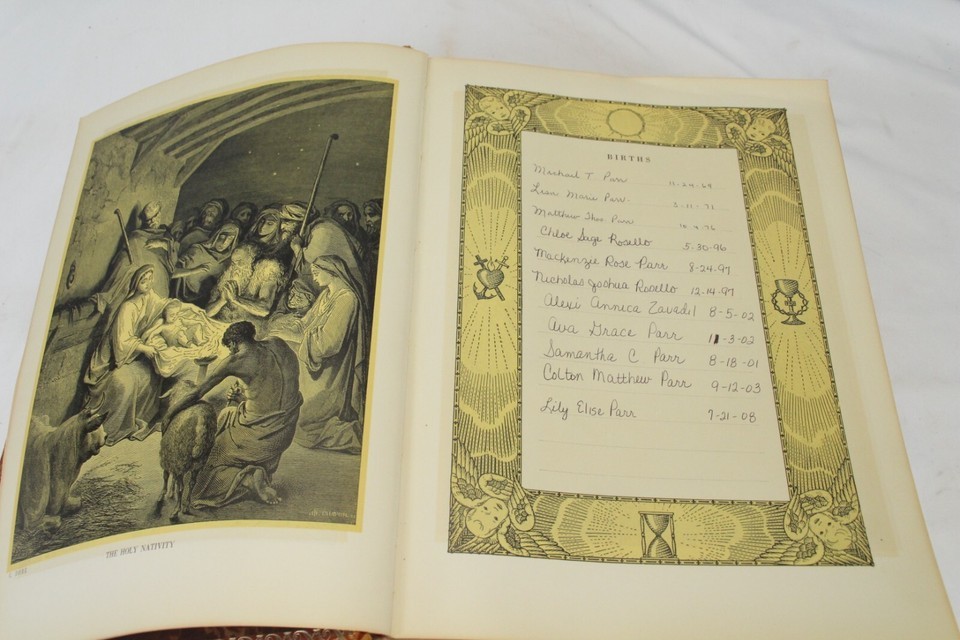 THE HOLY NATIVITY
BIRTHS
Michael T Parr
Lisa Marie Parr. 2-11-71
Matthew Thos. Parr
Chloe Sage Rosello 5-30-96
Mackenzie Rose Parr 8-24-97
Nicholas Joshua Rosello 12-14-97
Alexi Anneca Zavadil 8-5-02
Ava Grace Parr 11-3-02
Samantha C Parr 8-18-01
Colton Matthew Parr 9-12-03
Lily Elise Parr 7-21-08